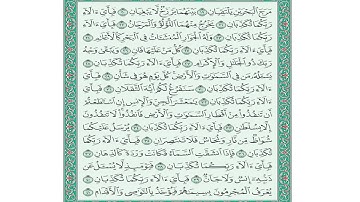 مَرَجَ ٱلْبَحْرَيْنِ يَلْتَقِيَانِ ۝١٩ بَيْنَهُمَا بَرْزَخٌ لَّا يَبْغِيَانِ ۝٢٠ فَبِأَىِّ ءَالَآءِ
رَبِّكُمَا تُكَذِّبَانِ ۝٢١ يَخْرُجُ مِنْهُمَا ٱللُّؤْلُؤُ وَٱلْمَرْجَانُ ۝٢٢ فَبِأَىِّ ءَالَآءِ
رَبِّكُمَا تُكَذِّبَانِ ۝٢٣ وَلَهُ ٱلْجَوَارِ ٱلْمُنشَـَٔاتُ فِى ٱلْبَحْرِ كَٱلْأَعْلَٰمِ ۝٢٤
فَبِأَىِّ ءَالَآءِ رَبِّكُمَا تُكَذِّبَانِ ۝٢٥ كُلُّ مَنْ عَلَيْهَا فَانٍ ۝٢٦ وَيَبْقَىٰ وَجْهُ
رَبِّكَ ذُو ٱلْجَلَٰلِ وَٱلْإِكْرَامِ ۝٢٧ فَبِأَىِّ ءَالَآءِ رَبِّكُمَا تُكَذِّبَانِ ۝٢٨
يَسْـَٔلُهُۥ مَن فِى ٱلسَّمَٰوَٰتِ وَٱلْأَرْضِ كُلَّ يَوْمٍ هُوَ فِى شَأْنٍ ۝٢٩ فَبِأَىِّ
ءَالَآءِ رَبِّكُمَا تُكَذِّبَانِ ۝٣٠ سَنَفْرُغُ لَكُمْ أَيُّهَ ٱلثَّقَلَانِ ۝٣١ فَبِأَىِّ
ءَالَآءِ رَبِّكُمَا تُكَذِّبَانِ ۝٣٢ يَٰمَعْشَرَ ٱلْجِنِّ وَٱلْإِنسِ إِنِ ٱسْتَطَعْتُمْ
أَن تَنفُذُوا۟ مِنْ أَقْطَارِ ٱلسَّمَٰوَٰتِ وَٱلْأَرْضِ فَٱنفُذُوا۟ لَا تَنفُذُونَ
إِلَّا بِسُلْطَٰنٍ ۝٣٣ فَبِأَىِّ ءَالَآءِ رَبِّكُمَا تُكَذِّبَانِ ۝٣٤ يُرْسَلُ عَلَيْكُمَا
شُوَاظٌ مِّن نَّارٍ وَنُحَاسٌ فَلَا تَنتَصِرَانِ ۝٣٥ فَبِأَىِّ ءَالَآءِ رَبِّكُمَا
تُكَذِّبَانِ ۝٣٦ فَإِذَا ٱنشَقَّتِ ٱلسَّمَآءُ فَكَانَتْ وَرْدَةً كَٱلدِّهَانِ ۝٣٧
فَبِأَىِّ ءَالَآءِ رَبِّكُمَا تُكَذِّبَانِ ۝٣٨ فَيَوْمَئِذٍ لَّا يُسْـَٔلُ عَن
ذَنۢبِهِۦٓ إِنسٌ وَلَا جَآنٌّ ۝٣٩ فَبِأَىِّ ءَالَآءِ رَبِّكُمَا تُكَذِّبَانِ ۝٤٠
يُعْرَفُ ٱلْمُجْرِمُونَ بِسِيمَٰهُمْ فَيُؤْخَذُ بِٱلنَّوَٰصِى وَٱلْأَقْدَامِ